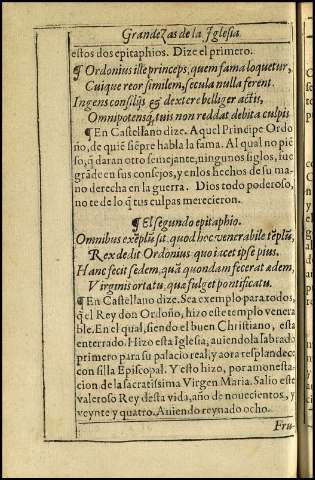 GrandeZas de la Iglesia
estos dos epitaphios. Dize el primero.
¶ Ordonius ille princeps, quem fama loquetur,
Cuique reor similem, secula nulla ferent.
Ingens consilijs eg dextere belliger actis,
Omnipotensq, tuis non reddat debita culpis
¶ En Castellano dize. Aquel Principe Ordo
ño, de quiē siēpre habla la fama. Al qual no piē
so, q̃ daran otro semejante, ningunos siglos, fue
grāde en sus consejos, y en los hechos de su ma
no derecha en la guerra. Dios todo poderoso,
no te de lo q̃ tus culpas merecieron.
¶ El segundo epitaphio.
Omnibus exēplū sit, quod hoc venerabile tēplū,
Rex dedit Ordonius quo iacet ipse pius.
Hanc fecit sedem, quā quondam fecerat ædem,
Virginis ortatu, quæ fulget pontificatu.
¶ En Castellano dize. Sea exemplo para todos,
q̃ el Rey don Ordoño, hizo este templo venera
ble. En el qual, siendo el buen Christiano, esta
enterrado. Hizo esta Iglesia, auiendola labrado
primero para su palacio real, y aora resplandece
con silla Episcopal. Y esto hizo, por amonesta-
cion de la sacratissima Virgen Maria. Salio este
valeroso Rey desta vida, año de nouecientos, y
veynte y quatro. Auiendo reynado ocho.
Fru-